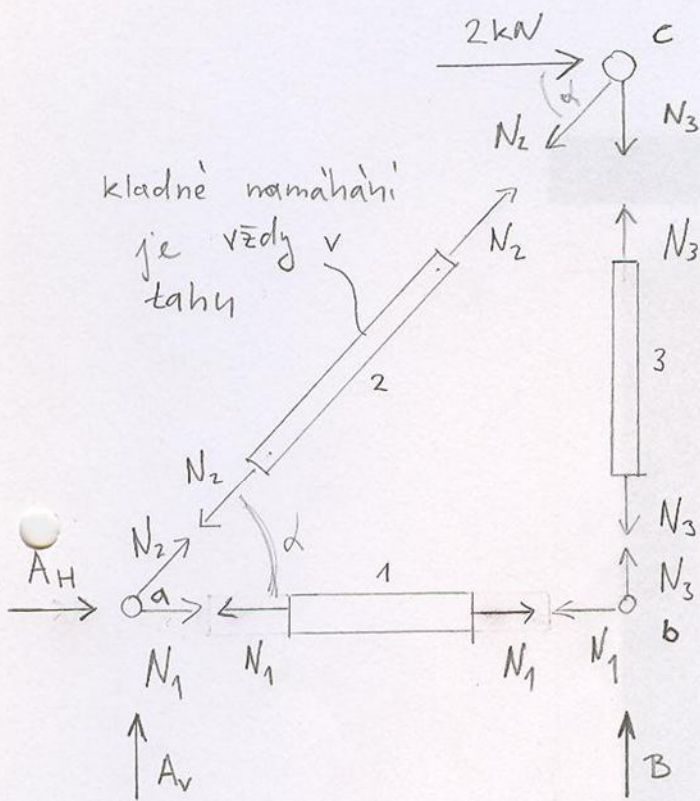 2kN
c
α
N₂
N₃
kladné namáhání
je vždy v
tahu
N₂
N₃
2
3
N₂
α
N₂
N₃
A_H
a
1
N₃
b
N₁
N₁
N₁
N₁
A_v
B